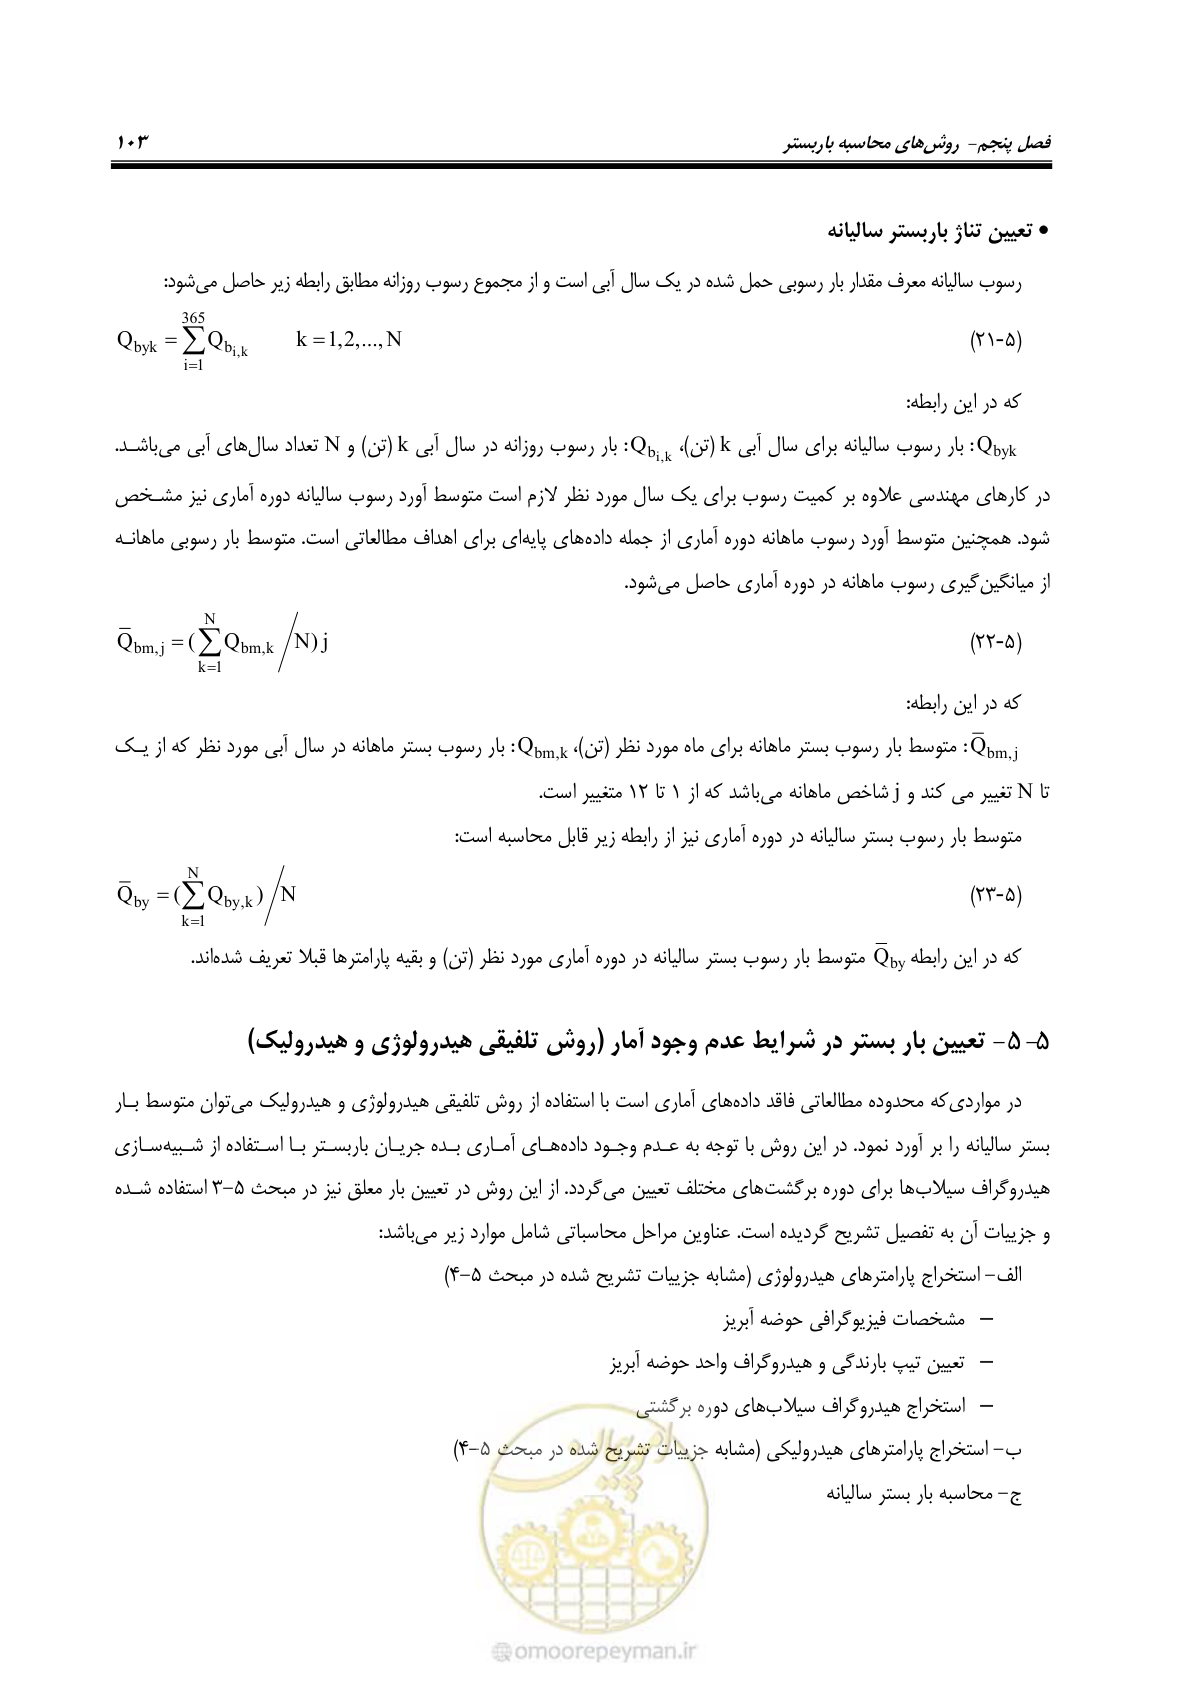 فصل پنجم- روش‌های محاسبه باربستر
۱۰۳
• تعیین تناژ باربستر سالیانه
رسوب سالیانه معرف مقدار بار رسوبی حمل شده در یک سال آبی است و از مجموع رسوب روزانه مطابق رابطه زیر حاصل می‌شود:
(۵-۲۱) Q_{byk} = \sum_{i=1}^{365} Q_{b_{i,k}}    k = 1,2,...,N
که در این رابطه:
Q_{byk}: بار رسوب سالیانه برای سال آبی k (تن)، Q_{b_{i,k}}: بار رسوب روزانه در سال آبی k (تن) و N تعداد سال‌های آبی می‌باشـد.
در کارهای مهندسی علاوه بر کمیت رسوب برای یک سال مورد نظر لازم است متوسط آورد رسوب سالیانه دوره آماری نیز مشـخص
شود. همچنین متوسط آورد رسوب ماهانه دوره آماری از جمله داده‌های پایه‌ای برای اهداف مطالعاتی است. متوسط بار رسوبی ماهانـه
از میانگین‌گیری رسوب ماهانه در دوره آماری حاصل می‌شود.
(۵-۲۲) \bar{Q}_{bm,j} = (\sum_{k=1}^{N} Q_{bm,k} / N) j
که در این رابطه:
\bar{Q}_{bm,j}: متوسط بار رسوب بستر ماهانه برای ماه مورد نظر (تن)، Q_{bm,k}: بار رسوب بستر ماهانه در سال آبی مورد نظر که از یـک
تا N تغییر می کند و j شاخص ماهانه می‌باشد که از ۱ تا ۱۲ متغییر است.
متوسط بار رسوب بستر سالیانه در دوره آماری نیز از رابطه زیر قابل محاسبه است:
(۵-۲۳) \bar{Q}_{by} = (\sum_{k=1}^{N} Q_{by,k}) / N
که در این رابطه \bar{Q}_{by} متوسط بار رسوب بستر سالیانه در دوره آماری مورد نظر (تن) و بقیه پارامترها قبلا تعریف شده‌اند.
۵-۵- تعیین بار بستر در شرایط عدم وجود آمار (روش تلفیقی هیدرولوژی و هیدرولیک)
در مواردی‌که محدوده مطالعاتی فاقد داده‌های آماری است با استفاده از روش تلفیقی هیدرولوژی و هیدرولیک می‌توان متوسط بـار
بستر سالیانه را بر آورد نمود. در این روش با توجه به عـدم وجـود داده‌هـای آمـاری بـده جریـان باربسـتر بـا اسـتفاده از شـبیه‌سـازی
هیدروگراف سیلاب‌ها برای دوره برگشت‌های مختلف تعیین می‌گردد. از این روش در تعیین بار معلق نیز در مبحث ۵-۳ استفاده شـده
و جزییات آن به تفصیل تشریح گردیده است. عناوین مراحل محاسباتی شامل موارد زیر می‌باشد:
الف- استخراج پارامترهای هیدرولوژی (مشابه جزییات تشریح شده در مبحث ۵-۴)
– مشخصات فیزیوگرافی حوضه آبریز
– تعیین تیپ بارندگی و هیدروگراف واحد حوضه آبریز
– استخراج هیدروگراف سیلاب‌های دوره برگشتی
ب- استخراج پارامترهای هیدرولیکی (مشابه جزییات تشریح شده در مبحث ۵-۴)
ج- محاسبه بار بستر سالیانه
امور پیمان
@omoorepeyman.ir